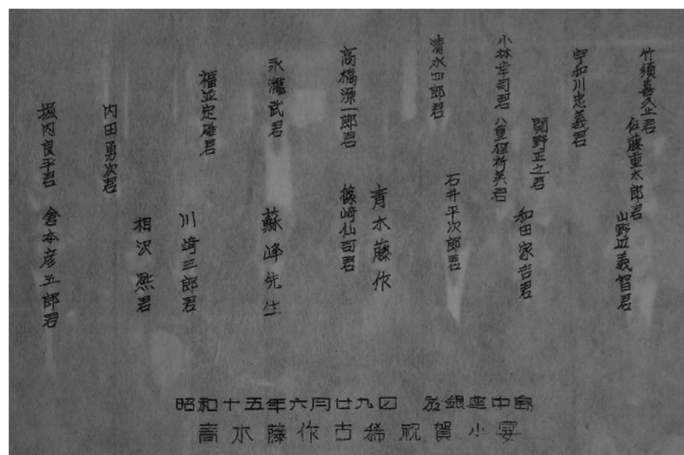 竹須喜久止君
佐藤重太郎君
山野井義智君
宇和川忠義君
関野正之君
和田家吉君
小林宰司君
八重樫祈美君
清水四郎君
石井平次郎君
青木藤作
高橋源一郎君
篠崎仙司君
永瀧武君
蘇峰先生
福並定雄君
川崎三郎君
内田勇次君
相沢凞君
堀内良平君
倉本彦五郎君
昭和十五年六月廿九日 於銀座中嶋
青木藤作古稀祝賀小宴